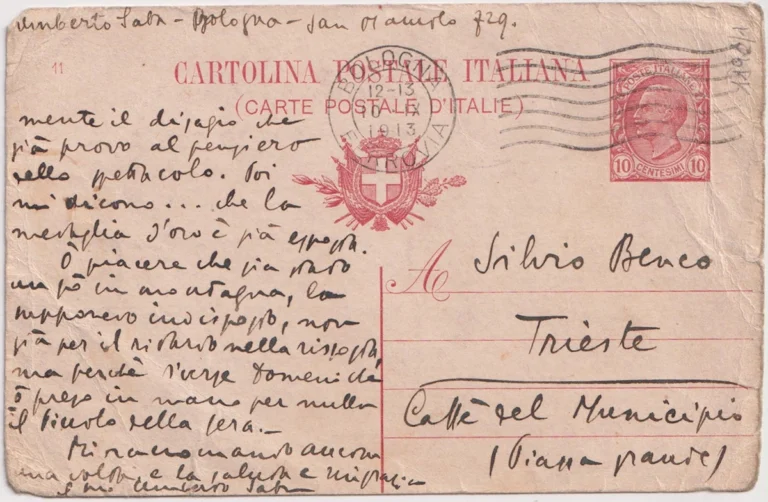 Umberto Saba - Bologna - San Mamolo 729.
11
CARTOLINA POSTALE ITALIANA
(CARTE POSTALE D'ITALIE)
BOLOGNA
12-13
10 IX
1913
FERROVIA
POSTE ITALIANE
10 CENTESIMI 10
mente il disagio che
già provo al pensiero
dello spettacolo. Poi
mi dicono... che la
medaglia d'oro è già esposta.
Ò piacere che sia stato
un pò in montagna, lo
supponevo indisposto, non
già per il ritardo nella risposta,
ma perchè l'urge Domenica
ò preso in mano per nulla
il Piccolo della sera. -
Mi raccomando ancora
una volta, e la saluto e ringrazio
il suo Umberto Saba
A Silvio Benco
Trieste
Caffè del Municipio
(Piazza grande)